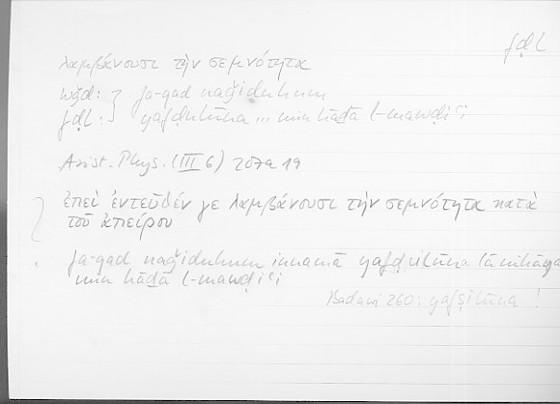 fḍl
λαμβάνουσι τὴν σεμνότητα
wǧd: } fa-qad naǧiduhum
fḍl: } yafḍulūna ... min hāḏā l-mawḍiʿi
Arist. Phys. (III 6) 207a19
ἐπεὶ ἐντεῦθέν γε λαμβάνουσι τὴν σεμνότητα κατὰ
τοῦ ἀπείρου
fa-qad naǧiduhum innamā yafḍulūna lā nihāya
min hāḏā l-mawḍiʿi
Badawi 260: yafṣilūna !